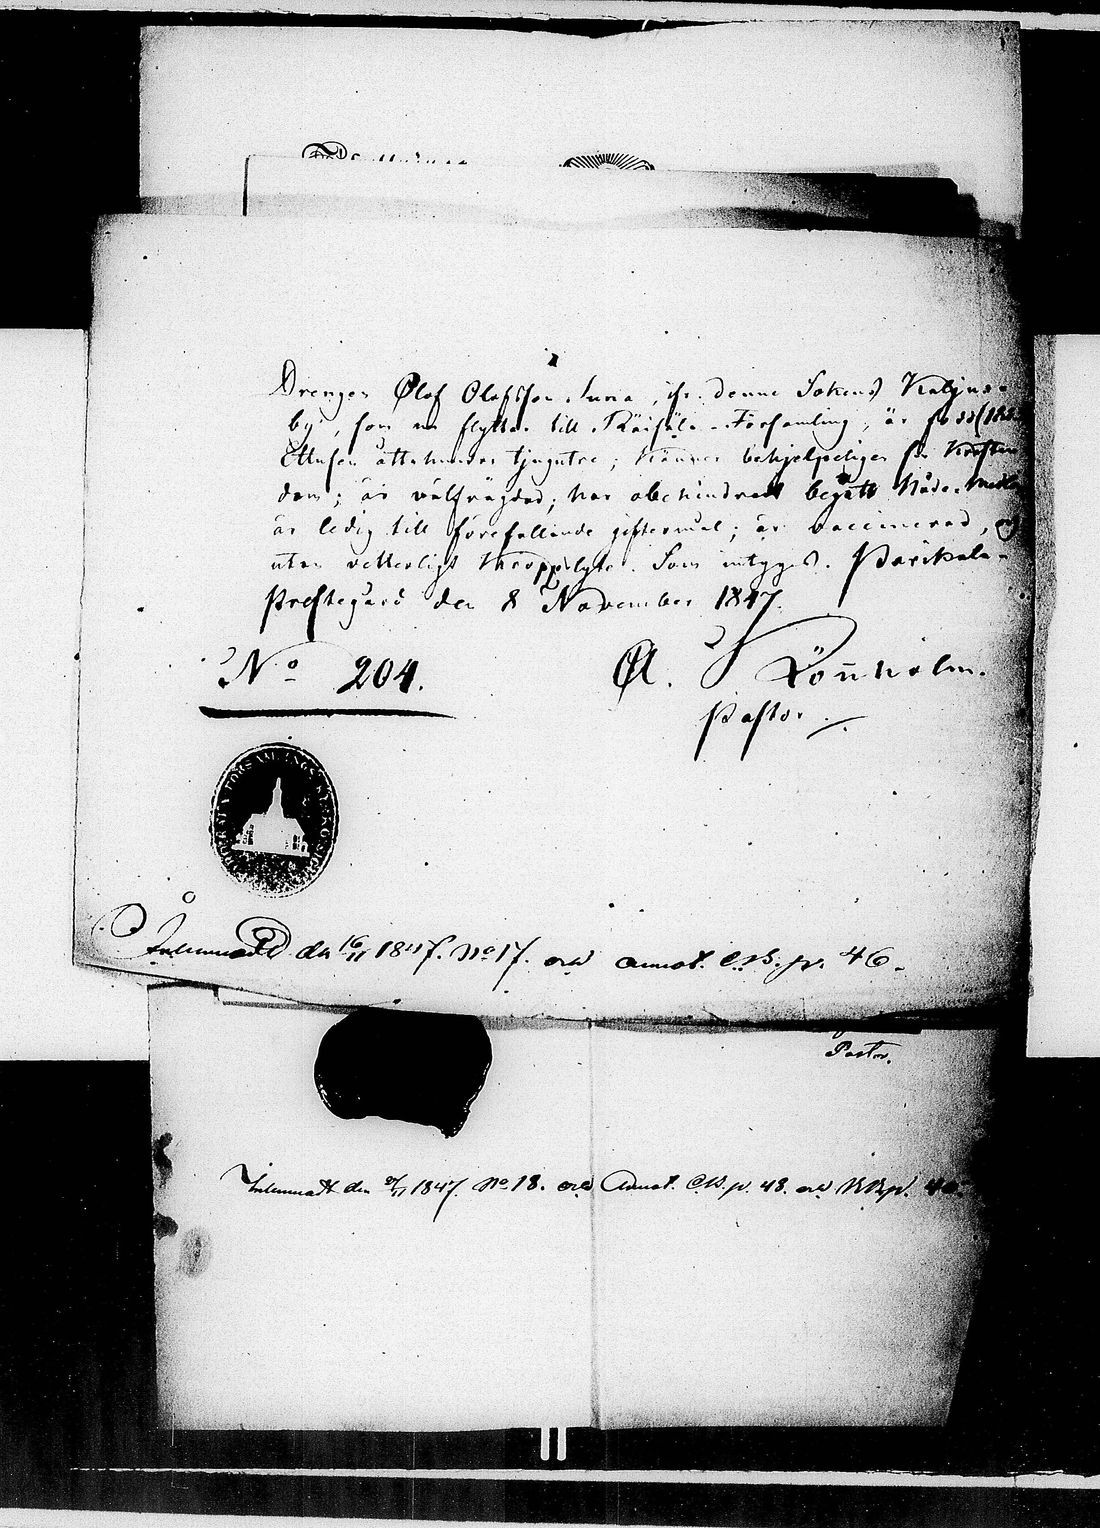 Drengen Olof Olofsson Suna, ifr. denne Sokens Kaljus-
by, som nu flyttar till Räisälä-Församling, är född (1823
Ettusen åttahundra tjugutre; känner behjelpeligen sin Kristen
dom; är välfrägdad; har obehindradt begått Nådemedlen
är ledig till förefallande giftermål; är vaccinerad, och
utan vetterligt kroppslyte. Som intygas. Parikala-
Prestegård den 8 November 1847.
No 204.
A. J Rönnholm.
Pastor
FÖRSAMLINGS KYRKOSIGILL
Inlemnadt den 16/11 1847. No 17. och annot. C.B. p. 46.
Pastor.
Inlemnadt den 1847. No 18. och Annot. C.B. p. 48. och